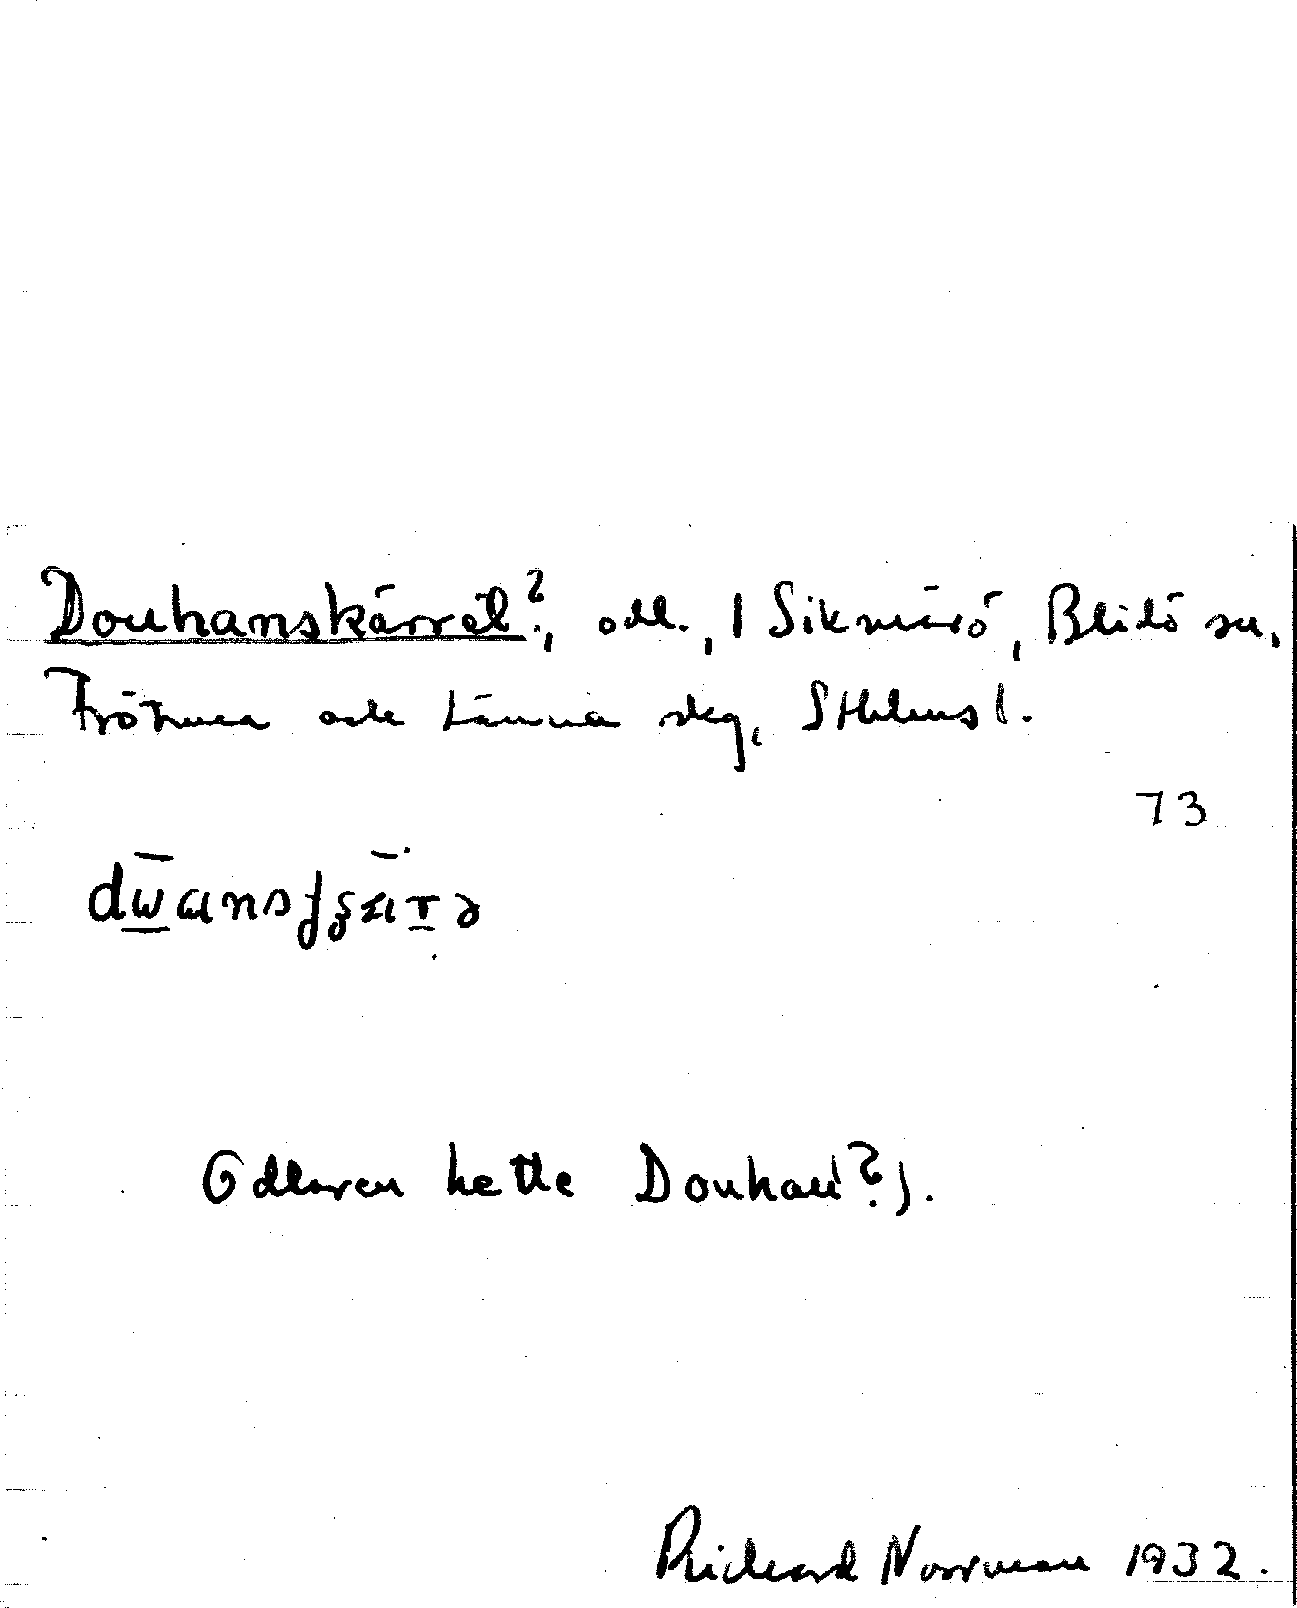 Douhanskärret?, odl., 1 Sikmarö, Blidö sn,
Frötuna och Länna skg, Sthlms l.
73
Odlaren hette Douhan?).
Rickard Norrman 1932.